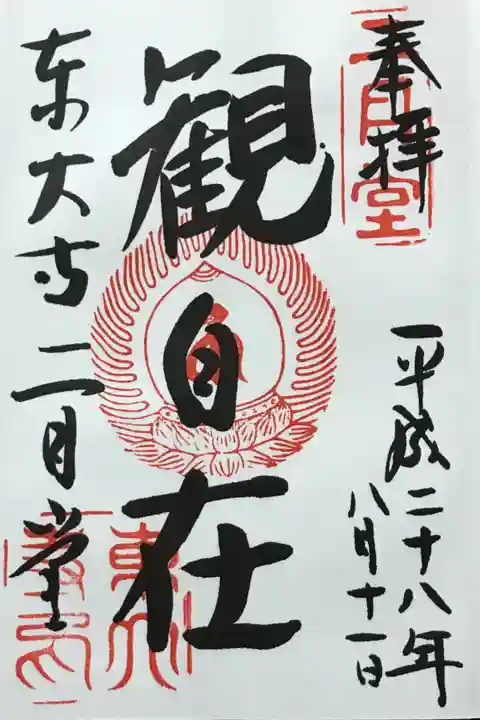 奉拝
二月堂
平成二十八年
八月十一日
観自在
東大寺二月堂